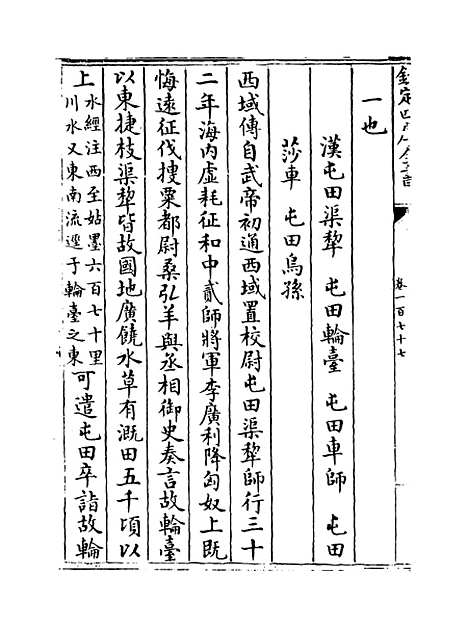 欽定四庫全書
卷一百七十七
一也
漢屯田渠犂 屯田輪臺 屯田車師 屯田
莎車 屯田烏孫
西域傳自武帝初通西域置校尉屯田渠犂師行三十
二年海内虛耗征和中貳師將軍李廣利降匈奴上既
悔遠征伐搜粟都尉桑弘羊與丞相御史奏言故輪臺
以東捷枝渠犂皆故國地廣饒水草有溉田五千頃以
上水經注西至姑墨六百七十里
川水又東南流逕于輪臺之東可遣屯田卒詣故輪